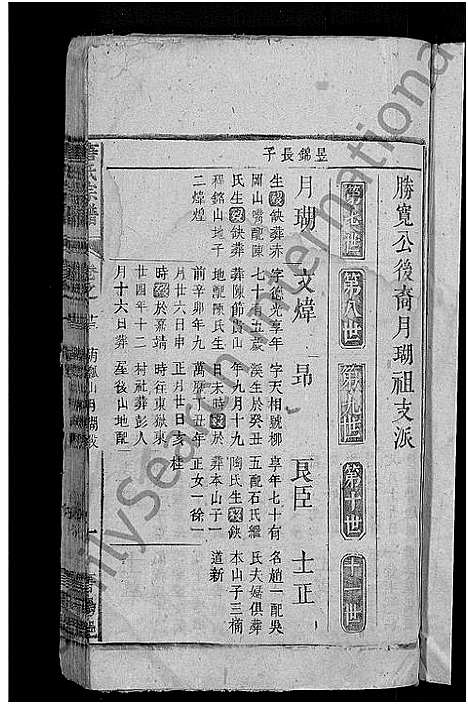 勝寬公後裔月瑚祖支派
第七世
第八世
第九世
第十世
十一世
昱錦長子
月瑚
生歿缺葬赤
岡山嘴配陳
氏生歿缺葬
銘山地子
二煒煌
文煒
字德光享年
七十有五歲
葬陳節貴山
地配陳氏生
前辛卯年九
月廿六日申
時歿於嘉靖
廿四年十二
月十六日葬
昂
字天相號柳
溪生於癸丑
年九月十九
日未時歿於
萬曆丁丑年
正月廿日亥
時往東嶽東
村社葬彭人
屋後山地配
艮臣
享年七十有
五配石氏繼
陶氏生歿缺
葬本山子一
正女一徐一
桂
士正
名趙一配吳
氏夫婦俱葬
本山子三楠
道新
氏宗譜
卷之
FamilySearch International